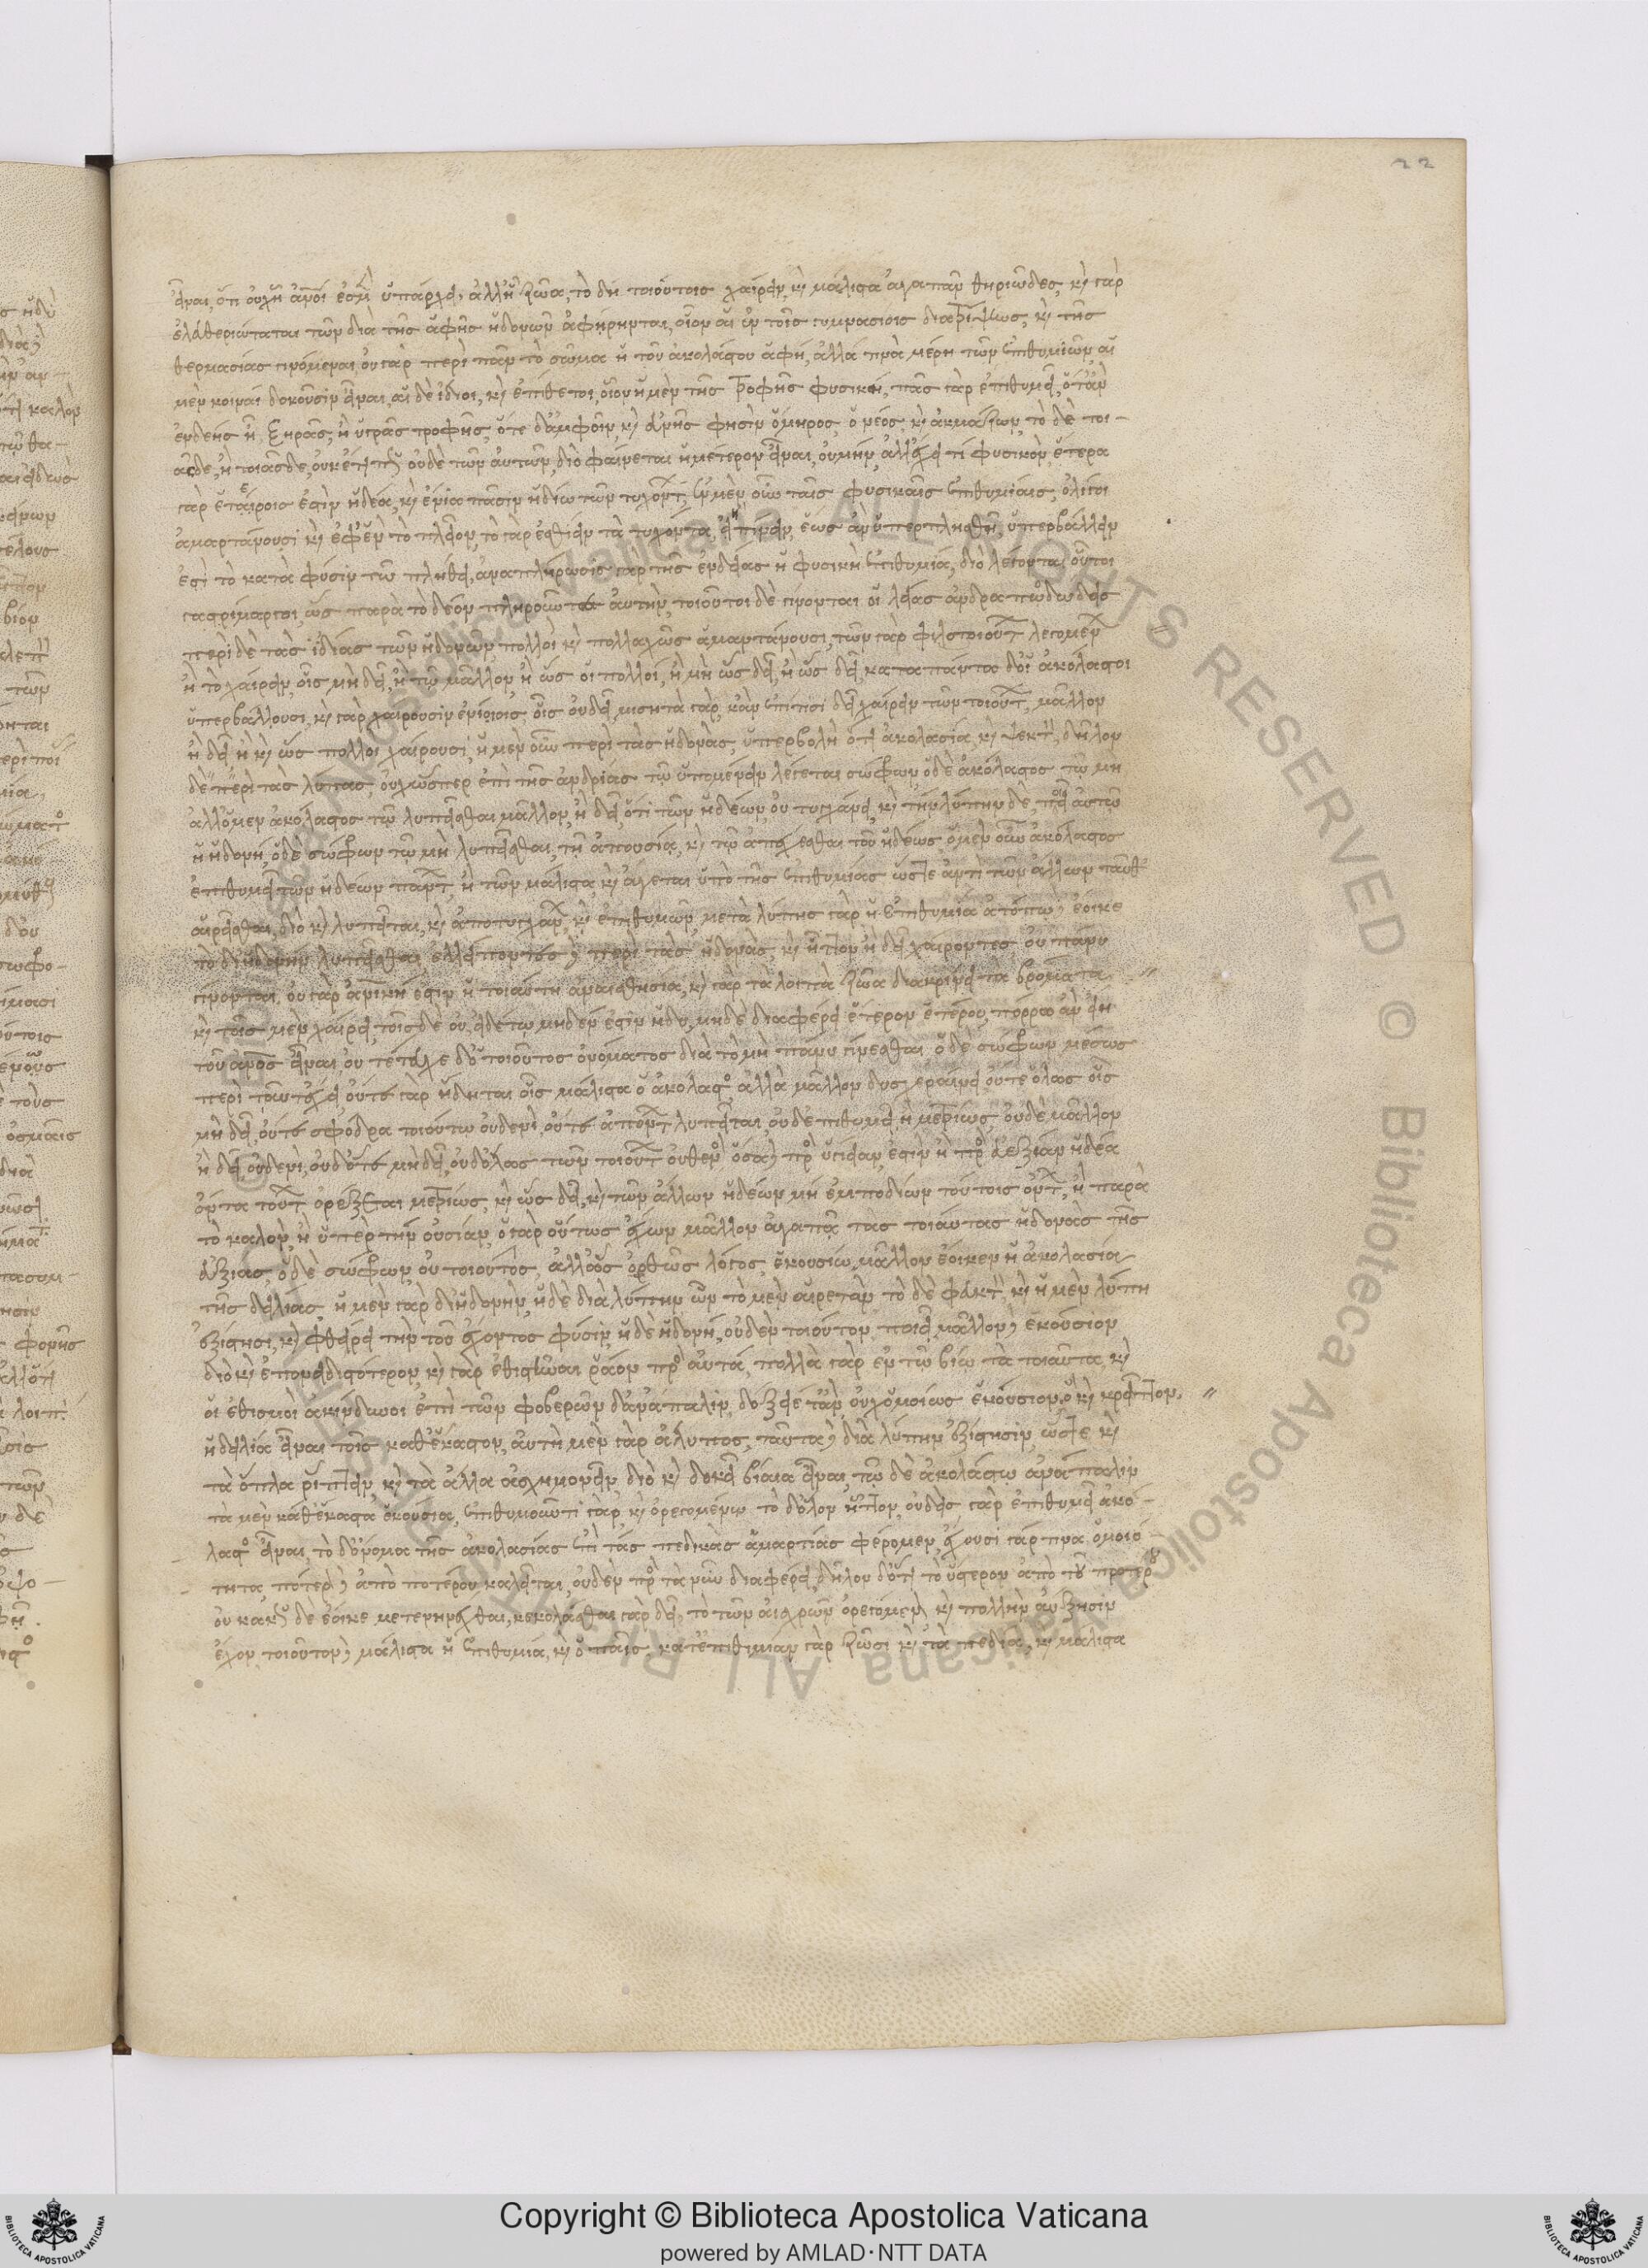 22
εἶναι, ὅτι οὐχ ᾗ ἄνθρωποί ἐσμεν ὑπάρχει, ἀλλ' ᾗ ζῶα, τὸ δὴ τοιούτοις χαίρειν, καὶ μάλιστα ἀγαπᾶν θηριῶδες, καὶ γὰρ
ἐλευθεριώταται τῶν διὰ τῆς ἁφῆς ἡδονῶν ἀφήρηνται, οἷον αἱ ἐν τοῖς γυμνασίοις διὰ τρίψεως, καὶ τῆς
θερμασίας γινόμεναι, οὐ γὰρ περὶ πᾶν τὸ σῶμα ἡ τοῦ ἀκολάστου ἁφή, ἀλλὰ τινὰ μέρη τῶν ἐπιθυμιῶν, αἱ
μὲν κοιναὶ δοκοῦσιν εἶναι, αἱ δὲ ἴδιοι, καὶ ἐπίθετοι, οἷον ἡ μὲν τῆς τροφῆς φυσική, πᾶς γὰρ ἐπιθυμεῖ, ὅταν
ἐνδεὴς ᾖ ξηρᾶς, ἢ ὑγρᾶς τροφῆς, ὁτὲ δ' ἀμφοῖν, καὶ εὐνῆς φησὶν ὅμηρος, ὁ νέος, καὶ ἀκμάζων, τὸ δὲ τοι-
ᾶσδε, ἢ τοιᾶσδε, οὐκέτι πᾶς οὐδὲ τῶν αὐτῶν, διὸ φαίνεται ἡμέτερον εἶναι, οὐ μὴν ἀλλ' ἔχει τί φυσικόν, ἕτερα
γὰρ ἑτέροις ἐστὶν ἡδέα, καὶ ἔνια πᾶσιν ἡδίω τῶν τυχόντων, ἐν μὲν οὖν ταῖς φυσικαῖς ἐπιθυμίαις, ὀλίγοι
ἁμαρτάνουσι καὶ ἐφ' ἓν τὸ πλεῖον, τὸ γὰρ ἐσθίειν τὰ τυχόντα, ἢ πίνειν, ἕως ἂν ὑπερπλησθῇ, ὑπερβάλλειν
ἐστὶ τὸ κατὰ φύσιν τῷ πλήθει, ἀναπλήρωσις γὰρ τῆς ἐνδείας ἡ φυσικὴ ἐπιθυμία, διὸ λέγονται οὗτοι
γαστρίμαργοι, ὡς παρὰ τὸ δέον πληροῦντες αὐτήν, τοιοῦτοι δὲ γίνονται οἱ λίαν ἀνδραποδώδεις
περὶ δὲ τὰς ἰδίας τῶν ἡδονῶν πολλοὶ καὶ πολλαχῶς ἁμαρτάνουσι, τῶν γὰρ φιλοτοιούτων λεγομένων
ἢ τὸ χαίρειν, οἷς μὴ δεῖ, ἢ τῷ μᾶλλον, ἢ ὡς οἱ πολλοί, ἢ μὴ ὡς δεῖ, ἢ ὡς δεῖ, κατὰ πάντα δ' οἱ ἀκόλαστοι
ὑπερβάλλουσι, καὶ γὰρ χαίρουσιν ἐνίοις, οἷς οὐ δεῖ, μισητὰ γάρ, κἂν ἐπί τισι δεῖ χαίρειν τῶν τοιούτων, μᾶλλον
ἢ δεῖ ἢ καὶ ὡς πολλοὶ χαίρουσι, ἡ μὲν οὖν περὶ τὰς ἡδονὰς, ὑπερβολὴ ὅτι ἀκολασία, καὶ ψεκτόν, δῆλον
δὲ περὶ τὰς λύπας, οὐχ ὥσπερ ἐπὶ τῆς ἀνδρίας τῷ ὑπομένειν λέγεται σώφρων, ὁ δὲ ἀκόλαστος τῷ μὴ
ἀλλ' ὁ μὲν ἀκόλαστος τῷ λυπεῖσθαι μᾶλλον, ἢ δεῖ, ὅτι τῶν ἡδέων, οὐ τυγχάνει, καὶ τὴν λύπην δὲ ποιεῖ αὐτῷ
ἡ ἡδονή, ὁ δὲ σώφρων τῷ μὴ λυπεῖσθαι, τῇ ἀπουσίᾳ, καὶ τῷ ἀπέχεσθαι τοῦ ἡδέως, ὁ μὲν οὖν ἀκόλαστος
ἐπιθυμεῖ τῶν ἡδέων πάντων, ἢ τῶν μάλιστα, καὶ ἄγεται ὑπὸ τῆς ἐπιθυμίας ὥστε ἀντὶ τῶν ἄλλων ταῦθ'
αἱρεῖσθαι, διὸ καὶ λυπεῖται, καὶ ἀποτυγχάνων, καὶ ἐπιθυμῶν, μετὰ λύπης γὰρ ἡ ἐπιθυμία ἀτόπῳ δ' ἔοικε
τὸ δι' ἡδονὴν λυπεῖσθαι, ἐλλείποντες δὲ περὶ τὰς ἡδονὰς, καὶ ἧττον ἢ δεῖ χαίροντες οὐ πάνυ
γίνονται, οὐ γὰρ ἀνθρωπική ἐστιν ἡ τοιαύτη ἀναισθησία, καὶ γὰρ τὰ λοιπὰ ζῶα διακρίνει τὰ βρώματα
καὶ τοῖς μὲν χαίρει, τοῖς δὲ οὔ, εἰ δέ τῳ μηδέν ἐστιν ἡδύ, μηδὲ διαφέρει ἕτερον ἑτέρου, πόρρω ἂν εἴη
τοῦ ἄνθρωπος εἶναι, οὐ τέτυχε δ' ὁ τοιοῦτος ὀνόματος διὰ τὸ μὴ πάνυ γίνεσθαι, ὁ δὲ σώφρων μέσως
περὶ ταῦτ' ἔχει, οὔτε γὰρ ἥδεται οἷς μάλιστα ὁ ἀκόλαστος, ἀλλὰ μᾶλλον δυσχεραίνει οὔτε ὅλως οἷς
μὴ δεῖ, οὔτε σφόδρα τοιούτῳ οὐδενί, οὔτε ἀπόντων λυπεῖται, οὐδ' ἐπιθυμεῖ, ἢ μετρίως, οὐδὲ μᾶλλον
ἢ δεῖ, οὐδενί, οὐδ' ὅτε μὴ δεῖ, οὐδ' ὅλως τῶν τοιούτων οὐθέν, ὅσα δὲ πρὸς ὑγίειαν, ἐστὶν ἢ πρὸς εὐεξίαν ἡδέα
ὄντα τούτων ὀρέξεται μετρίως, καὶ ὡς δεῖ, καὶ τῶν ἄλλων ἡδέων μὴ ἐμποδίων τούτοις ὄντων, ἢ παρὰ
τὸ καλόν, ἢ ὑπὲρ τὴν οὐσίαν, ὁ γὰρ οὕτως ἔχων μᾶλλον ἀγαπᾷ τὰς τοιαύτας ἡδονὰς τῆς
ἀξίας, ὁ δὲ σώφρων, οὐ τοιοῦτος, ἀλλ' ὡς ὀρθῶς λόγος, ἑκουσίῳ μᾶλλον ἔοικεν ἡ ἀκολασία
τῆς δειλίας, ἡ μὲν γὰρ δι' ἡδονὴν, ἡ δὲ διὰ λύπην ὧν τὸ μὲν αἱρετόν τὸ δὲ φευκτόν, καὶ ἡ μὲν λύπη
ἐξίστησι, καὶ φθείρει τὴν τοῦ ἔχοντος φύσιν, ἡ δὲ ἡδονὴ, οὐδὲν τοιοῦτον, ποιεῖ, μᾶλλον δὲ ἑκούσιον
διὸ καὶ ἐπονειδιστότερον, καὶ γὰρ ἐθισθῆναι ῥᾷον πρὸς αὐτά, πολλὰ γὰρ ἐν τῷ βίῳ τὰ τοιαῦτα, καὶ
οἱ ἐθισμοὶ ἀκίνδυνοι ἐπὶ τῶν φοβερῶν δ' ἀνάπαλιν, δόξειε δ' ἂν, οὐχ ὁμοίως ἑκούσιον
ἡ δειλία εἶναι τοῖς καθ' ἕκαστον, αὐτὴ μὲν γὰρ ἄλυπος, ταῦτα δὲ διὰ λύπην ἐξίστησιν, ὥστε καὶ
τὰ ὅπλα ῥίπτειν, καὶ τὰ ἄλλα ἀσχημονεῖν, διὸ καὶ δοκεῖ βίαια εἶναι, τῷ δὲ ἀκολάστῳ ἀνάπαλιν
τὰ μὲν καθ' ἕκαστα ἑκούσια, ἐπιθυμοῦντι γάρ, καὶ ὀρεγομένῳ τὸ δ' ὅλον ἧττον, οὐδεὶς γὰρ ἐπιθυμεῖ ἀκό-
λαστος εἶναι, τὸ δ' ὄνομα τῆς ἀκολασίας ἐπὶ τὰς πεδικὰς ἁμαρτίας φέρομεν, ἔχουσι γάρ τινα ὁμοιό-
τητα, πότερον δ' ἀπὸ ποτέρου καλεῖται, οὐδὲν πρὸς τὰ νῦν διαφέρει, δῆλον δ' ὅτι τὸ ὕστερον ἀπὸ τοῦ προτέρου
οὐ κακῶς δὲ ἔοικε μετενηνέχθαι, κεκολάσθαι γὰρ δεῖ, τὸ τῶν αἰσχρῶν ὀρεγόμενον καὶ πολλὴν αὔξησιν
ἔχον, τοιοῦτον δὲ μάλιστα ἡ ἐπιθυμία, καὶ ὁ παῖς. κατ' ἐπιθυμίαν γὰρ ζῶσι καὶ τὰ πεδία, καὶ μάλιστα
© Biblioteca Apostolica Vaticana ALL RIGHTS RESERVED
Copyright © Biblioteca Apostolica Vaticana
powered by AMLAD·NTT DATA
BIBLIOTECA APOSTOLICA VATICANA
BIBLIOTECA APOSTOLICA VATICANA